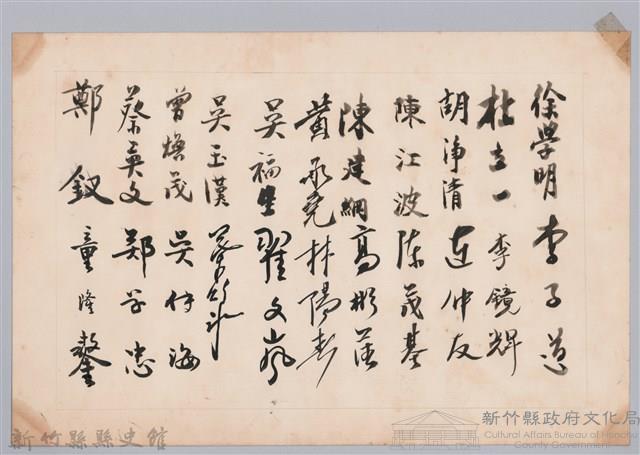 徐學明 李子逆
杜立一 李鏡輝
胡淨清 連仲友
陳江波 陳茂基
陳建綱 高彬萍
黃承堯 林陽春
吳福生 翟文嵐
吳玉漢
曾煥茂 吳伊海
蔡英文 鄭學忠
鄭釵 童隆鏊
新竹縣縣史館
新竹縣政府文化局
Cultural Affairs Bureau of Hsinchu
County Government